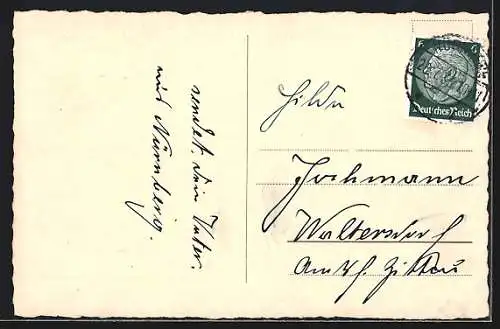 sendet dein Vater.
aus Nürnberg.
Hilde
Jochmann
Waltersdorf
Amtsh. Zittau
6 6
Deutsches Reich